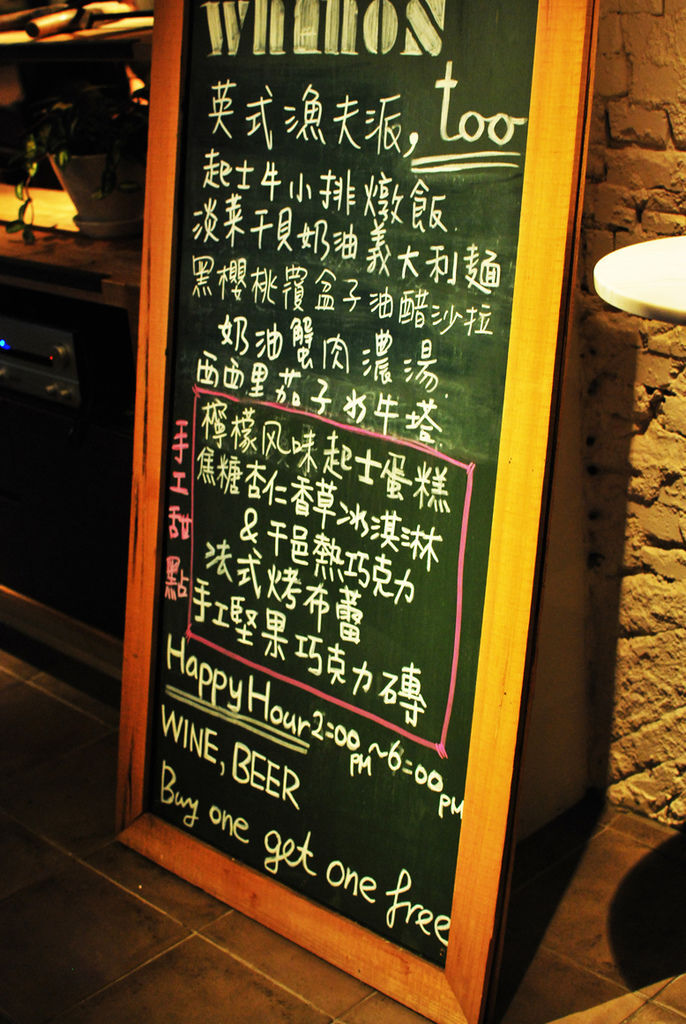 too
英式漁夫派,
起士牛小排燉飯
淡菜干貝奶油義大利麵
黑櫻桃覆盆子油醋沙拉
奶油蟹肉濃湯
西西里茄子水牛塔
手工甜點
檸檬风味起士蛋糕
焦糖杏仁香草冰淇淋
&干邑熱巧克力
法式烤布蕾
手工堅果巧克力磚
Happy Hour 2:00 PM ~ 6:00 PM
WINE, BEER
Buy one get one free